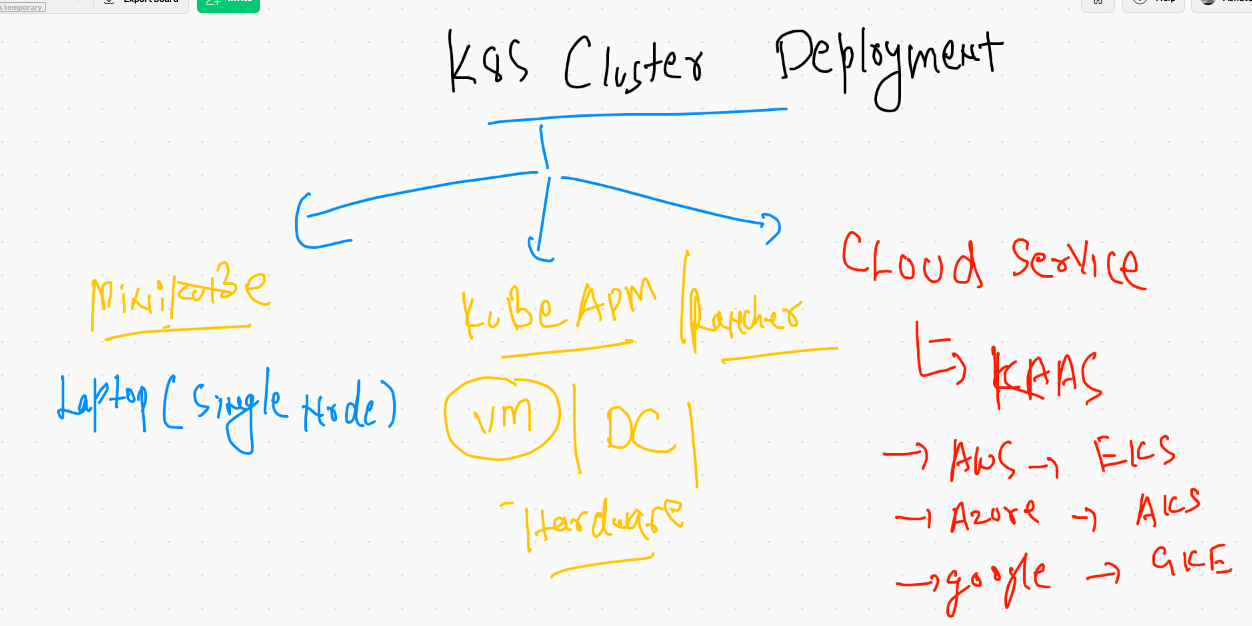 s temporary
Export board
Invite
Help
K8S Cluster Deployment
MiNikuBe
Laptop (Single Node)
KuBe ADM / Rancher
VM | DC |
Hardware
CLOUD SERVICE
KAAS
→ AWS → EKS
→ Azore → AKS
→ google → GKE